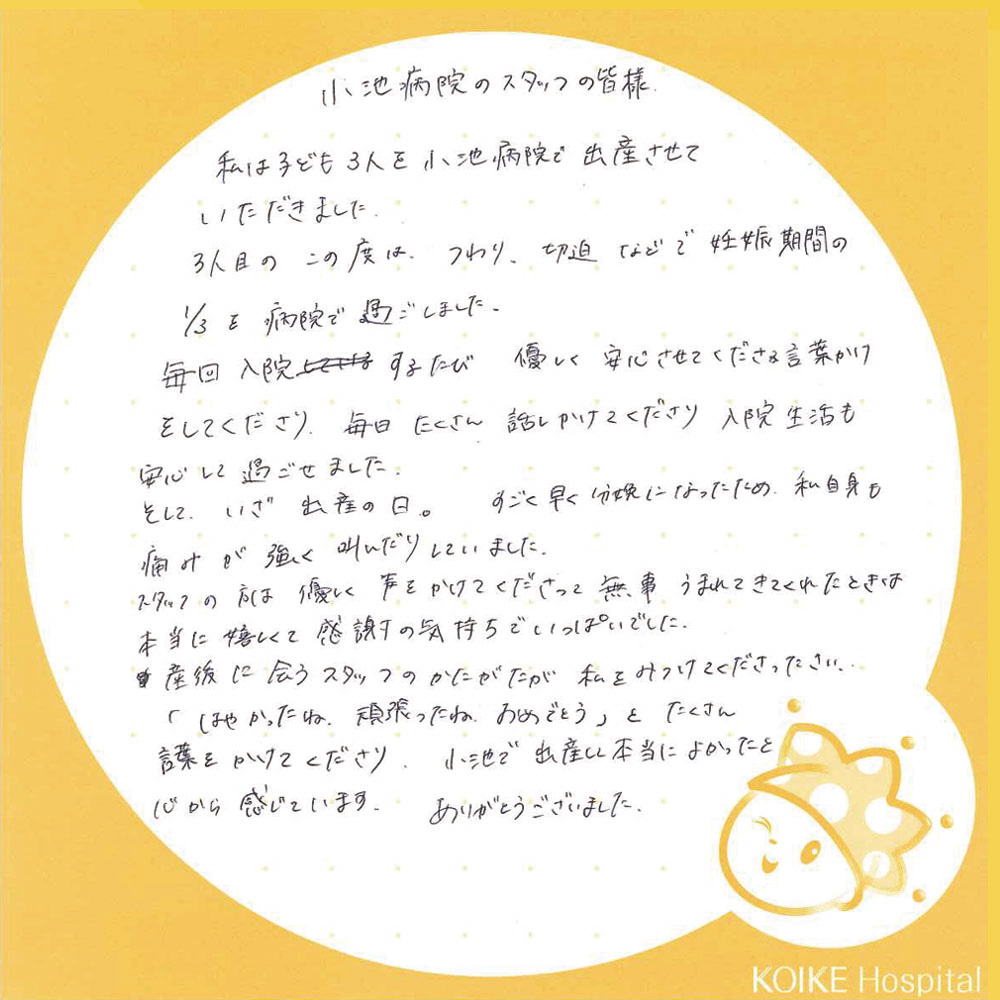 小池病院のスタッフの皆様
私は子ども3人を小池病院で出産させて
いただきました.
3人目の この度は、つわり、切迫 などで 妊娠期間の
1/3を 病院で 過ごしました.
毎回 入院 するたび 優しく 安心させてくださる言葉かけ
をしてくださり、毎日 たくさん 話しかけてくださり 入院生活も
安心して 過ごせました.
そして、いざ 出産の日。 すごく早く分娩になったため、私自身も
痛みが 強く 叫んだりしていました.
スタッフの方は 優しく 声をかけてくださって 無事 うまれてきてくれたときは
本当に 嬉しくて 感謝の気持ちでいっぱいでした.
産後に会うスタッフのかたがたが 私をみつけてくださったさい、
「はやかったね、頑張ったね、おめでとう」と たくさん
言葉を かけてくださり、小池で 出産し 本当によかったと
心から 感じています. ありがとうございました.
KOIKE Hospital